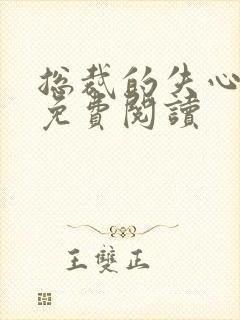 总裁的失心
免費閱讀
王雙正